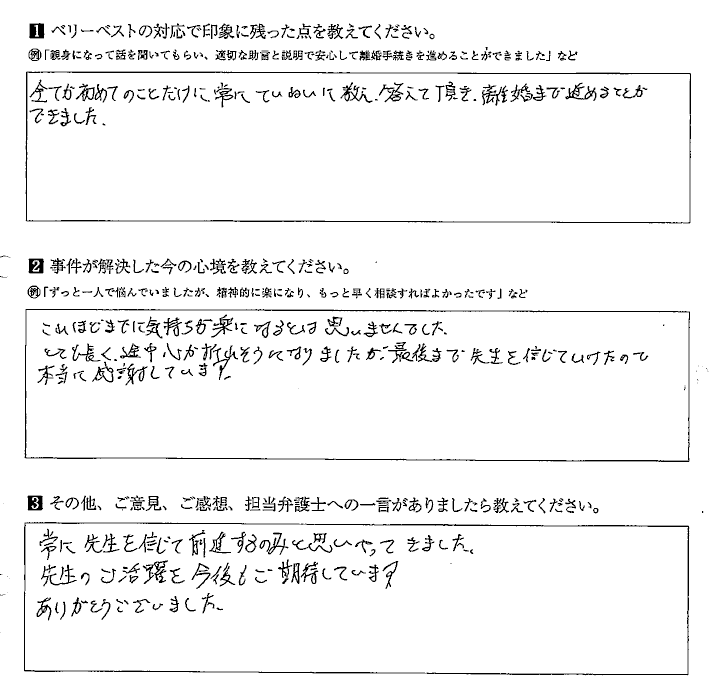 1 ベリーベストの対応で印象に残った点を教えてください。
例「親身になって話を聞いてもらい、適切な助言と説明で安心して離婚手続きを進めることができました」など
全てが初めてのことだけに、常にていねいに教え、答えて頂き、離婚まで進めることが
できました。
2 事件が解決した今の心境を教えてください。
例「ずっと一人で悩んでいましたが、精神的に楽になり、もっと早く相談すればよかったです」など
これほどまでに気持ちが楽になるとは思いませんでした。
とても長く、途中心が折れそうになりましたが、最後まで先生を信じていけたので
本当に感謝しています。
3 その他、ご意見、ご感想、担当弁護士への一言がありましたら教えてください。
常に先生を信じて前進するのみと思いやってきました。
先生のご活躍を今後もご期待しています
ありがとうございました。